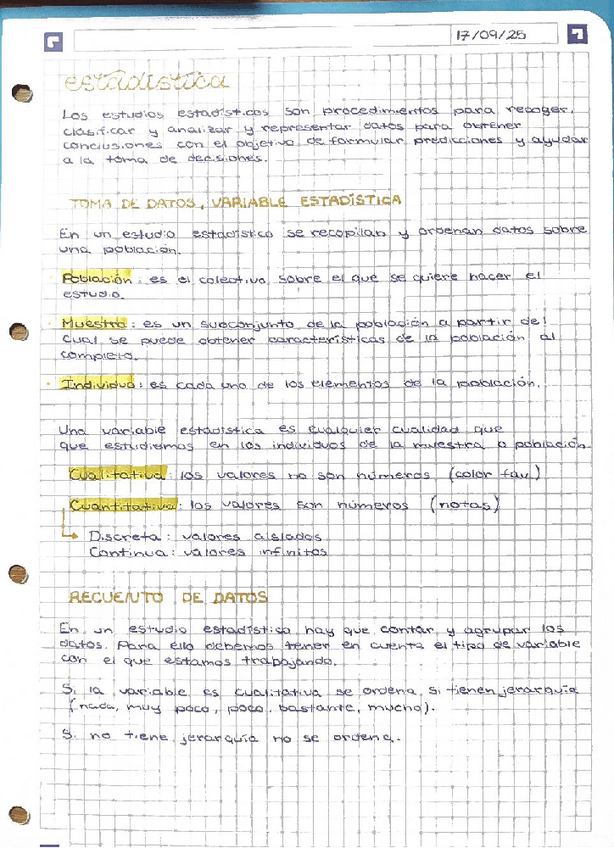 17/09/25
estadística
Los estudios estadísticos son procedimientos para recoger,
clasificar y analizar y representar datos para obtener
conclusiones con el objetivo de formular predicciones y ayudar
a la toma de decisiones.
TOMA DE DATOS, VARIABLE ESTADÍSTICA
En un estudio estadístico se recopilan y ordenan datos sobre
una población.
· Población: es el colectivo sobre el que se quiere hacer el
estudio.
· Muestra: es un subconjunto de la población a partir del
cual se puede obtener características de la población al
completo.
· Individuo: es cada uno de los elementos de la población.
Una variable estadística es cualquier cualidad que
que estudiemos en los individuos de la muestra o población
Cualitativa: los valores no son números (color fav.)
Cuantitativa: los valores son números (notas)
Discreta: valores aislados
Continua: valores infinitos
RECUENTO DE DATOS
En un estudio estadístico hay que contar y agrupar los
datos. Para ello debemos tener en cuenta el tipo de variable
con el que estamos trabajando.
Si la variable es cualitativa se ordena si tienen jerarquía
(nada, muy poco, poco, bastante, mucho).
Si no tiene jerarquía no se ordena.